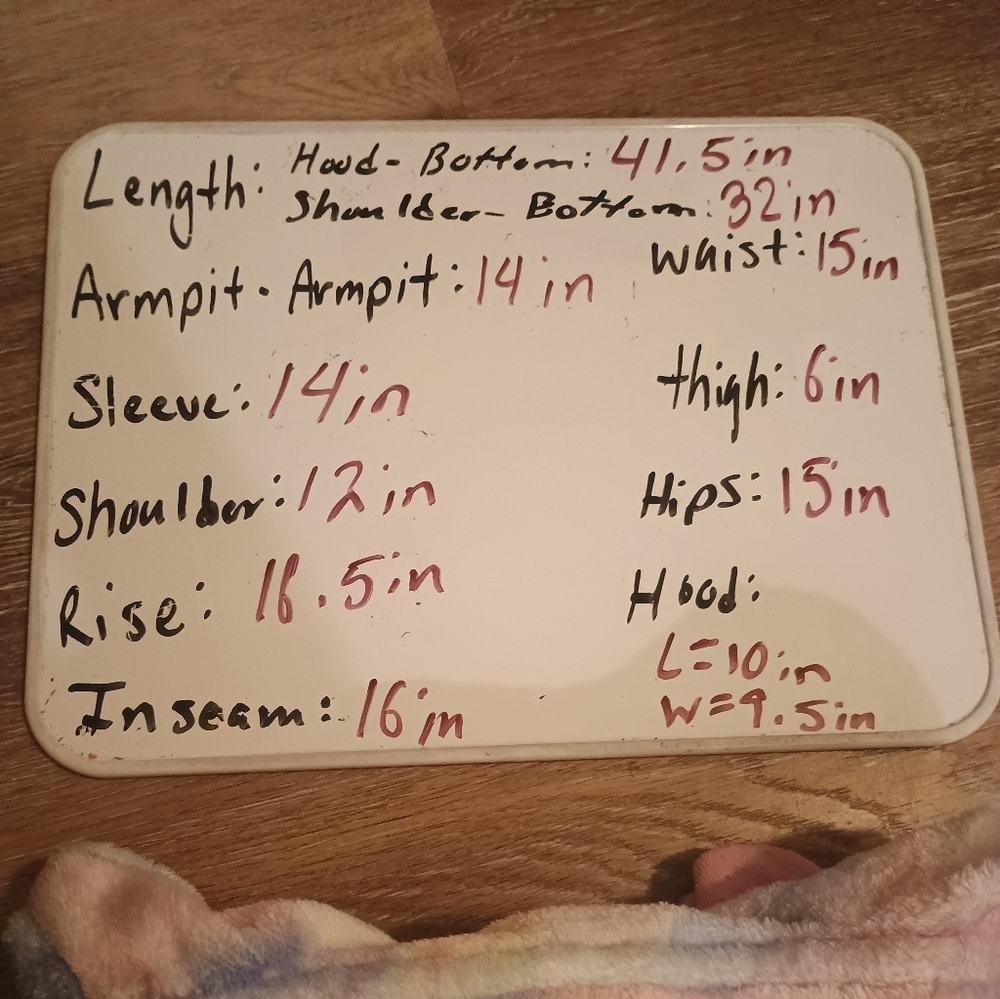 Length: Hood- Bottom: 41.5in
Shoulder- Bottom: 32in
Armpit - Armpit: 14 in
Waist: 15in
Sleeve: 14in
thigh: 6in
Shoulder: 12 in
Hips: 15in
Rise:
Inseam: 16in
Hood:
L=10in
W=9.5in